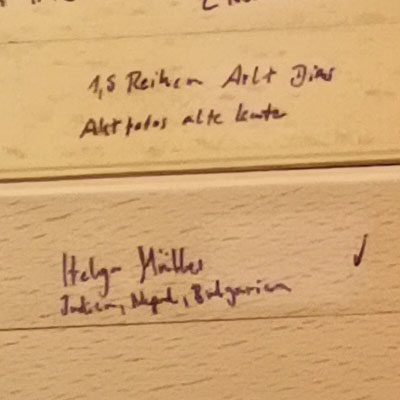 1,5 Reihen Arlt Dias
Aktfotos alte Leute
Helga Müller
Indien, Nepal, Bulgarien